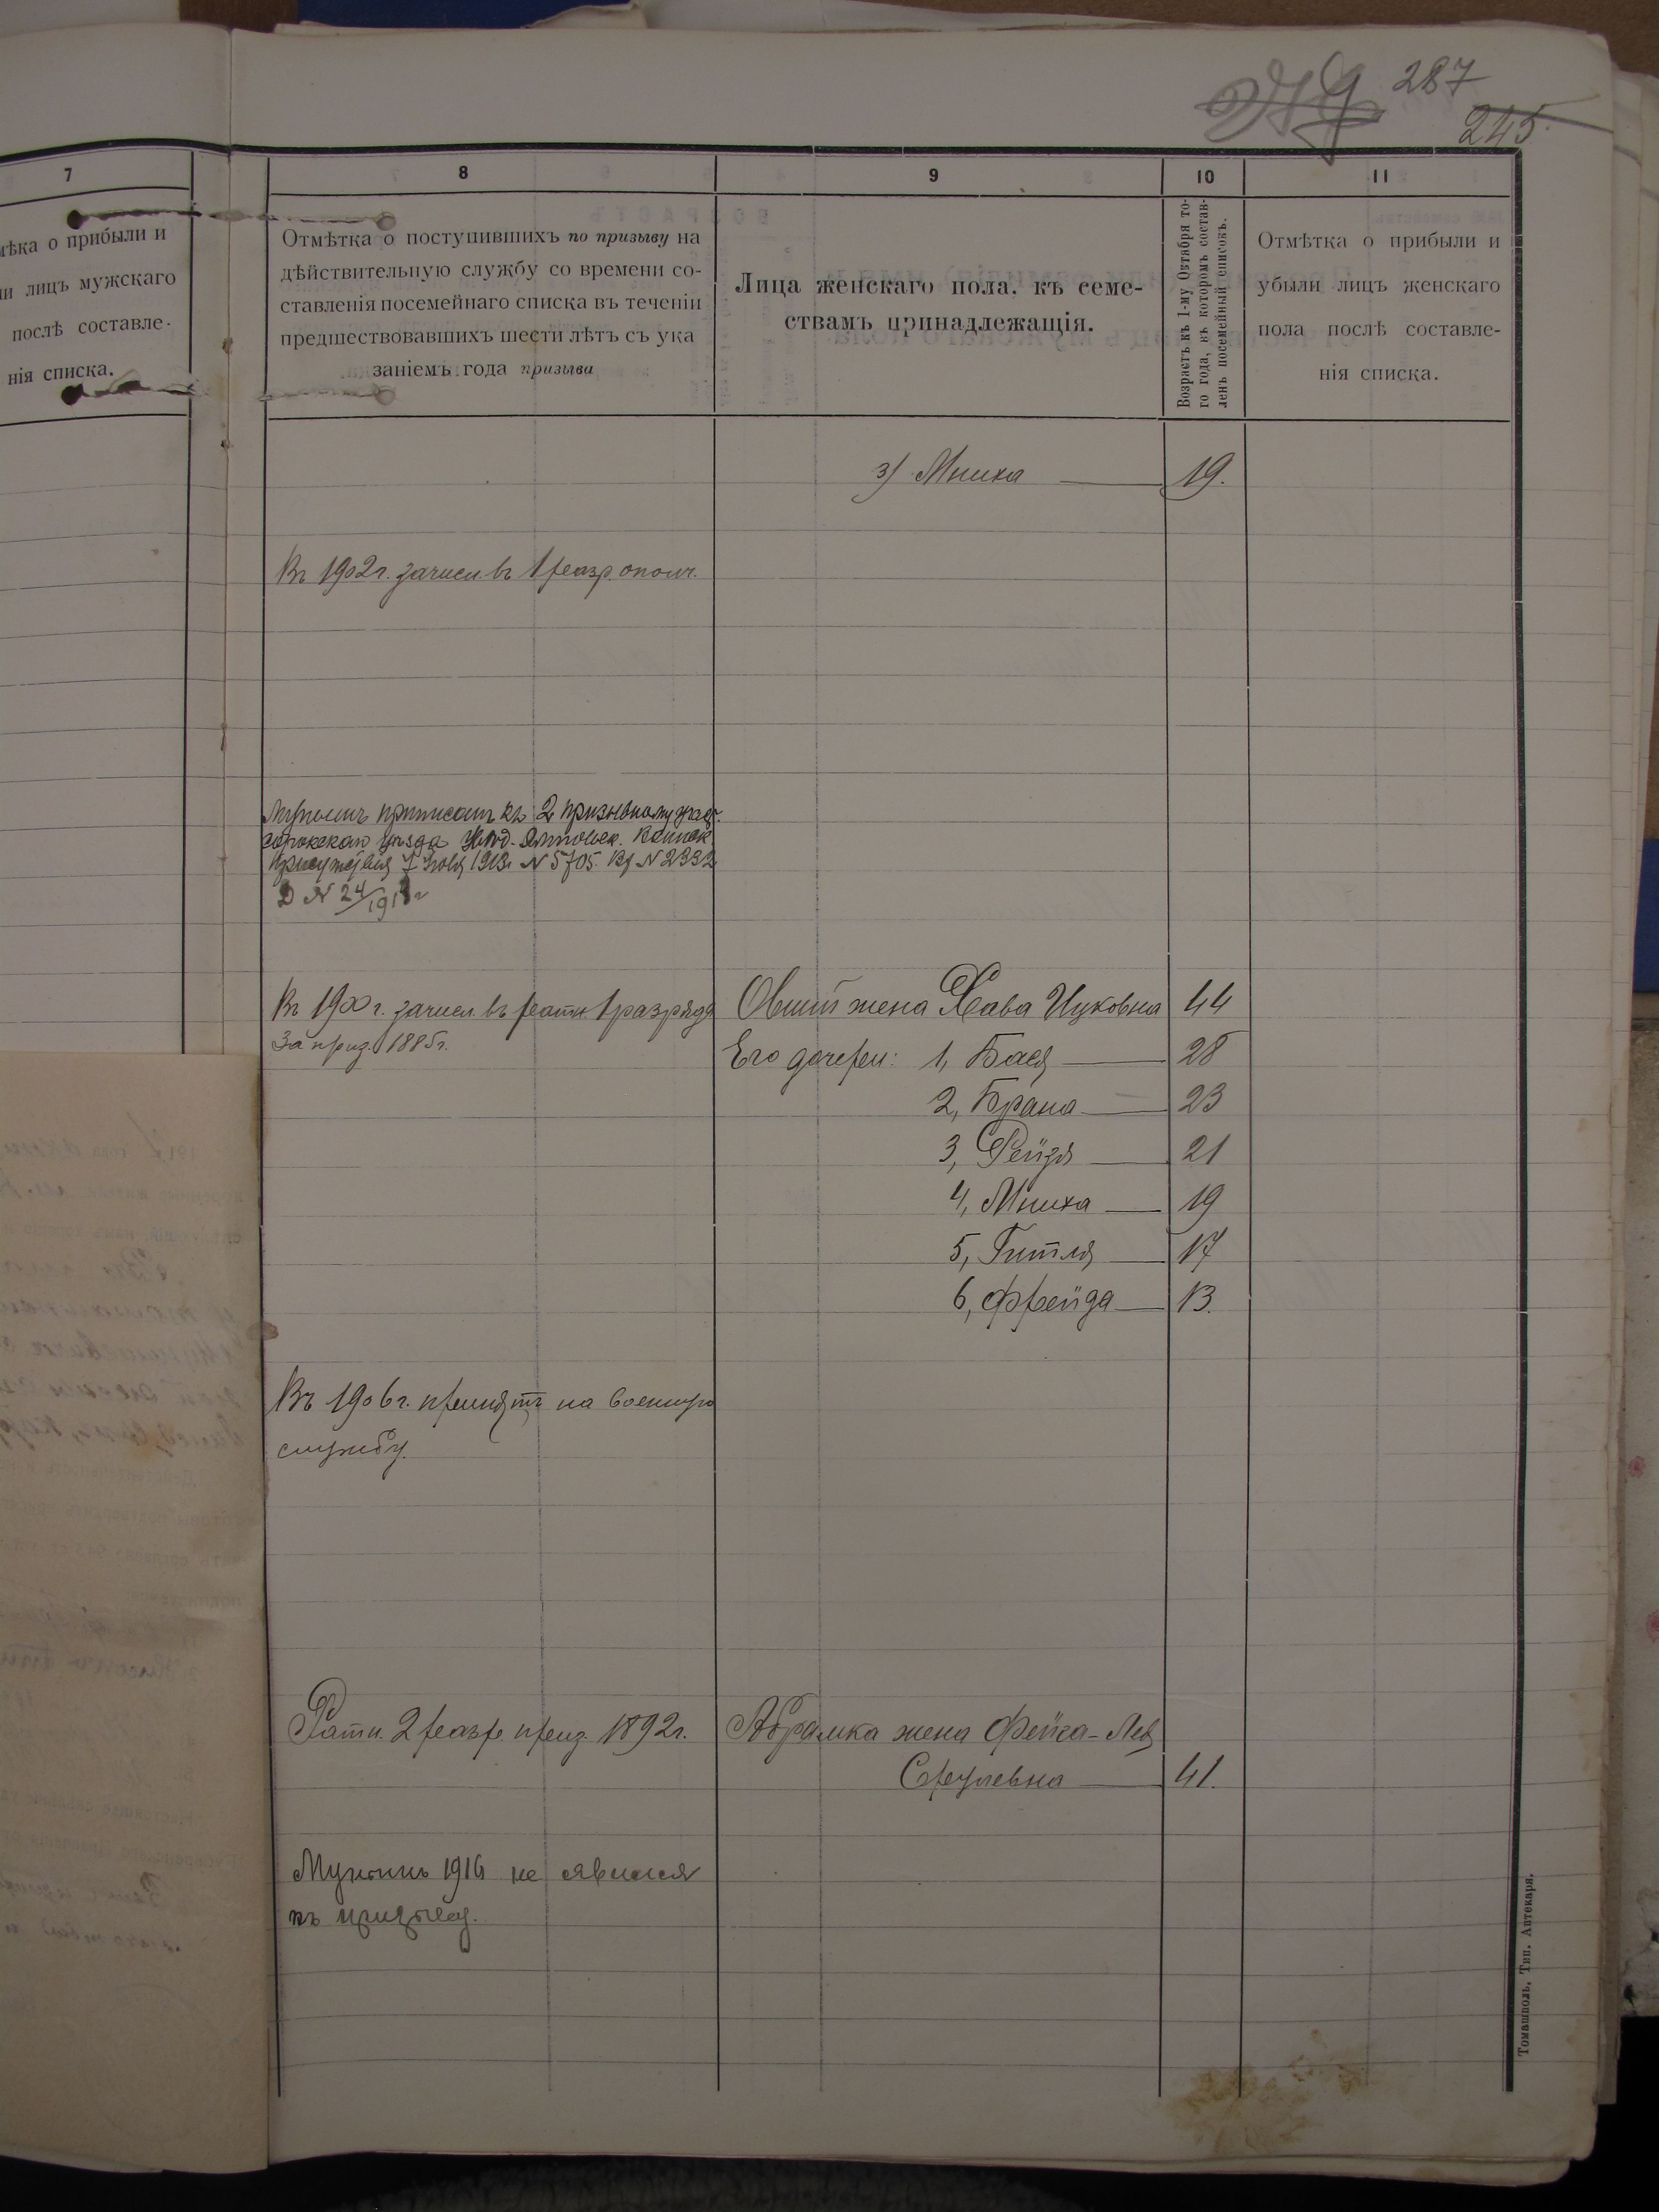 287
245
7
8
9
10
11
мѣка о прибыли и
ли лицъ мужскаго
послѣ составле-
нія списка.
Отмѣтка о поступившихъ по призыву на
дѣйствительную службу со времени со-
ставленія посемейнаго списка въ теченіи
предшествовавшихъ шести лѣтъ съ ука
заніемъ года призыва
Лица женскаго пола, къ семе-
ствамъ принадлежащія.
Возрастъ къ 1-му Октября то-
го года, въ которомъ состав-
ленъ посемейный списокъ.
Отмѣтка о прибыли и
убыли лицъ женскаго
пола послѣ составле-
нія списка.
3) Мниха 19.
Въ 1902 г. зачисл. въ 1 разр. ополч.
приписанъ къ 2 призывному
уѣзда
1913 N 5705. N 2332
Д N 24/1913 г
Въ 1900 г. зачисл. въ ратн. 1 разряда
За приз. 1885 г.
Овшія жена Хава Ицковна 44
Его дочери: 1, Бася 28
2, Брана 23
3, Рейзя 21
4, Мниха 19
5, Гитля 17
6, Фрейда 13.
Въ 1906 г. принятъ на военную
службу.
Ратн. 2 разр. приз. 1892 г.
Абрамка жена Фейга-Лея
Сруревна 41.
1916 не явился
къ призыву.
Томашполь, Тип. Аптекаря.